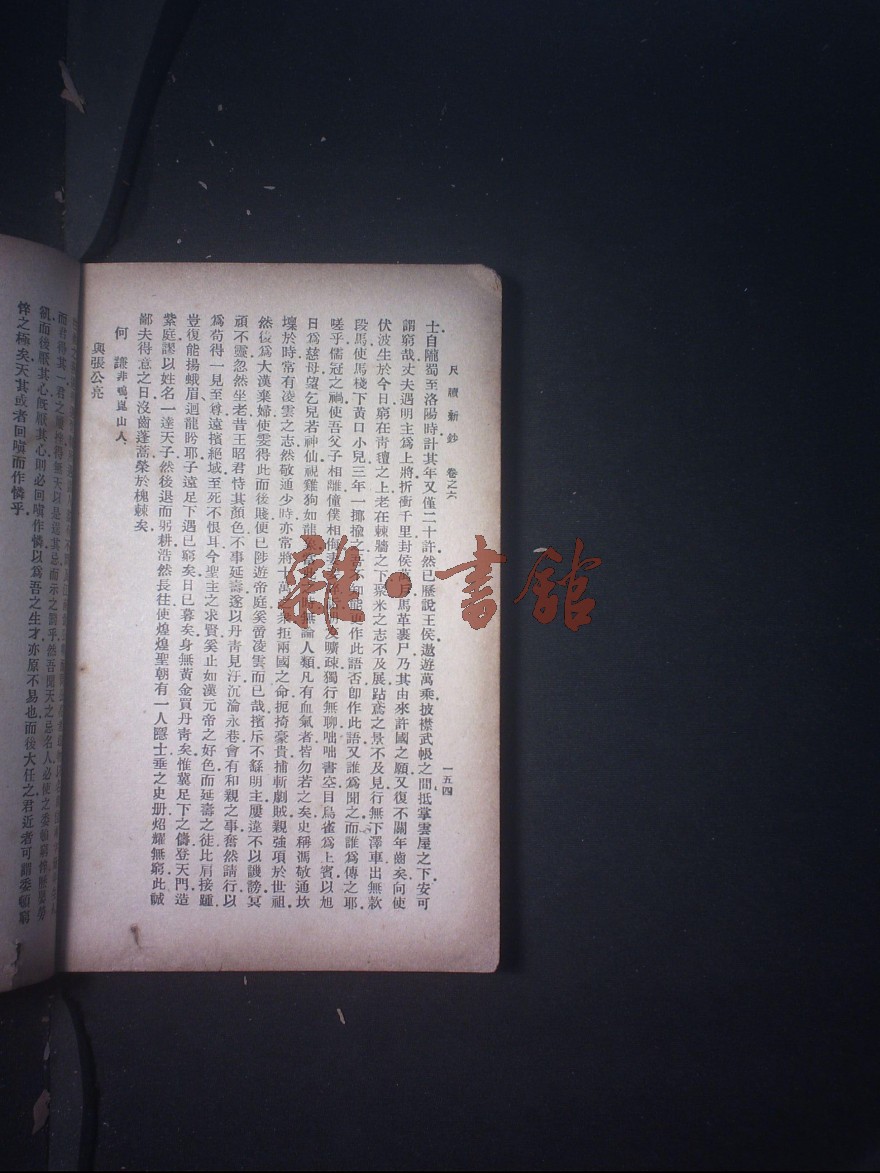 尺牘新鈔 卷之六 一五四
士自隴蜀至洛陽時計其年又僅二十許然已歷說王侯遨遊萬乘披襟武帳之間抵掌雲屋之下安可
謂窮哉丈夫遇明主爲上將折衝千里封侯萬戶馬革裹尸乃其由來許國之願又復不關年齒矣向使
伏波生於今日窮在靑氈之上老在棘牆之下聚米之志不及展跕鳶之景不及見行無下澤車出無款
段馬使馬棧下黃口小兒三年一揶揄之吾不知能更作此語否卽作此語又誰爲聞之而誰爲傳之耶
嗟乎儒冠之禍使吾父子相離僮僕相倚 曠疎獨行無聊咄咄書空目烏雀爲上賓以旭
日爲慈母望乞兒若神仙視雞狗如龍 無論人類凡有血氣者皆勿若之矣史稱馮敬通坎
壈於時常有凌雲之志然敬通少時亦常將十萬之衆拒兩國之命扼掎豪貴捕斬劇賊親強項於世祖
然後爲大漢棄婦使雯得此而後賤便已陟遊帝庭奚啻凌雲而已哉擯斥不繇明主屢違不以譏謗冥
頑不靈忽然坐老昔王昭君恃其顏色不事延壽遂以丹靑見汙沉淪永巷會有和親之事奮然請行以
爲苟得一見至尊遠擯絕域至死不恨耳今聖主之求賢奚止如漢元帝之好色而延壽之徒比肩接踵
豈復能揚蛾眉迴龍盻耶子遠足下遇已窮矣日已暮矣身無黃金買丹靑矣惟冀足下之儔登天門造
紫庭謬以姓名一達天子然後退而躬耕浩然長往使煌煌聖朝有一人隱士垂之史册炤耀無窮此誠
鄙夫得意之日沒齒蓬蒿榮於槐棘矣
何謙非鳴崑山人
與張公亮
而君得其一君之屢
欲而後厭其心旣厭其心則必回嗔作憐以爲吾之生才亦原不易也而後大任之君近者可謂委頓窮
悴之極矣天其或者回嗔而作憐乎
雜·書館